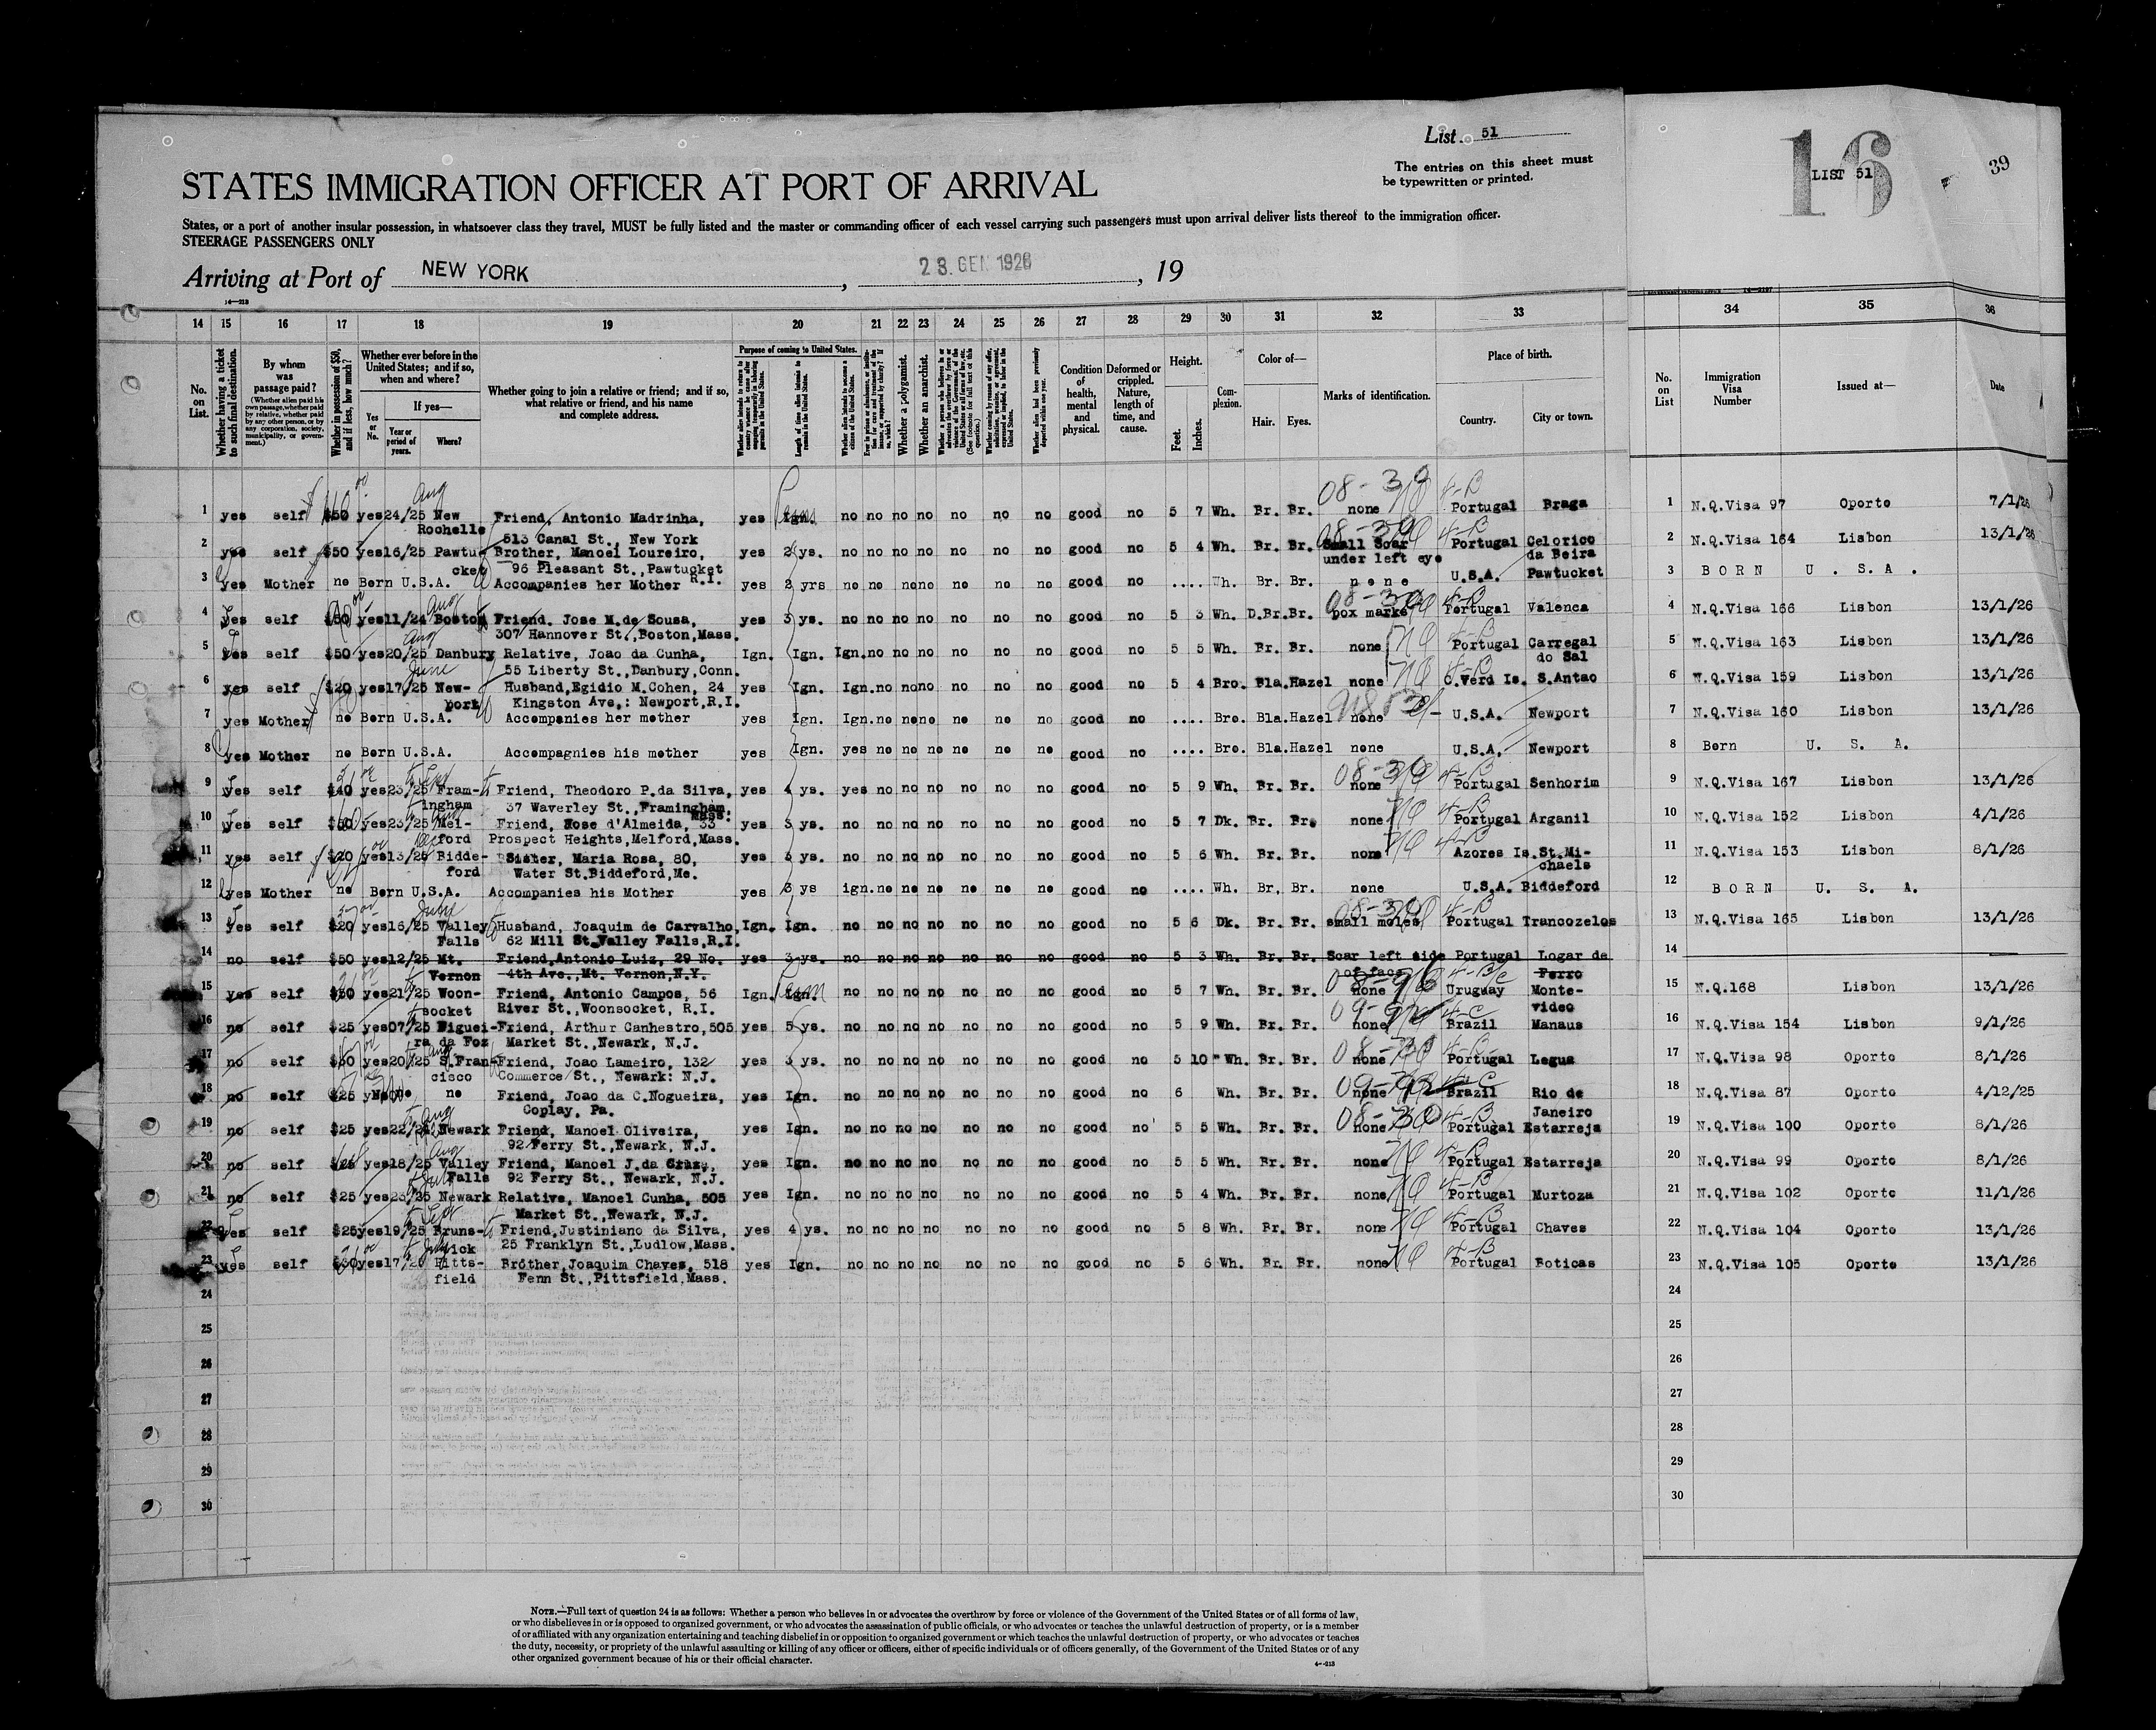 List 51
The entries on this sheet must
be typewritten or printed.
16
LIST 51
39
STATES IMMIGRATION OFFICER AT PORT OF ARRIVAL
States, or a port of another insular possession, in whatsoever class they travel, MUST be fully listed and the master or commanding officer of each vessel carrying such passengers must upon arrival deliver lists thereof to the immigration officer.
STEERAGE PASSENGERS ONLY
Arriving at Port of NEW YORK, 23. GEN 1926, 19
14 15 16 17 18 19 20 21 22 23 24 25 26 27 28 29 30 31 32 33 34 35 36
No. on List.
Whether having a ticket to such final destination.
By whom was passage paid?
(Whether alien paid his own passage, whether paid by relative, whether paid by any other person, or by any corporation, society, municipality, or government.)
Whether in possession of $50, and if less, how much?
Whether ever before in the United States; and if so, when and where?
Yes or No.
If yes—
Year or period of years.
Where?
Whether going to join a relative or friend; and if so, what relative or friend, and his name and complete address.
Purpose of coming to United States.
Whether a polygamist.
Whether an anarchist.
Condition of health, mental and physical.
Deformed or crippled. Nature, length of time, and cause.
Height.
Feet. Inches.
Complexion.
Color of—
Hair. Eyes.
Marks of identification.
Place of birth.
Country. City or town.
No. on List
Immigration Visa Number
Issued at—
Date
1 yes self $50 yes 24/25 New Friend, Antonio Madrinha, yes Ign. no no no no no no no good no 5 7 Wh. Br. Br. none Portugal Braga 1 N.Q.Visa 97 Oporto 7/1/26
Rochelle 513 Canal St., New York
2 yes self $50 yes16/25 Pawtu Brother, Manoel Loureiro, yes 2 ys. no no no no no no no good no 5 4 Wh. Br. Br. Small Scar Portugal Celorico 2 N.Q.Visa 164 Lisbon 13/1/26
cket 96 Pleasant St., Pawtucket R.I. under left eye da Beira
3 yes Mother no Born U.S.A. Accompanies her Mother yes 2 yrs no no no no no no no good no .... Wh. Br. Br. none U.S.A. Pawtucket 3 BORN U.S.A.
4 yes self $50 yes11/24 Boston Friend. Jose M.de Sousa, yes 3 ys. no no no no no no no good no 5 3 Wh. D.Br.Br. pox marks Portugal Valenca 4 N.Q.Visa 166 Lisbon 13/1/26
307 Hannover St.,Boston,Mass.
5 yes self $50 yes20/25 Danbury Relative, Joao da Cunha, Ign. Ign. Ign.no no no no no no good no 5 5 Wh. Br. Br. none Portugal Carregal 5 W.Q.Visa 163 Lisbon 13/1/26
55 Liberty St.,Danbury,Conn. do Sal
6 yes self $20 yes17/25 New- Husband,Egidio M.Cohen, 24 yes Ign. Ign.no no no no no no good no 5 4 Bro. Bla.Hazel none C.Verd Is. S.Antao 6 W.Q.Visa 159 Lisbon 13/1/26
port Kingston Ave,: Newport,R.I.
7 yes Mother no Born U.S.A. Accompanies her mother yes Ign. Ign.no no no no no no good no .... Bro. Bla.Hazel none U.S.A. Newport 7 N.Q.Visa 160 Lisbon 13/1/26
8 yes Mother no Born U.S.A. Accompagnies his mother yes Ign. yes no no no no no no good no .... Bro. Bla.Hazel none U.S.A. Newport 8 Born U. S. A.
9 yes self $40 yes23/25 Fram- Friend, Theodoro P.da Silva, yes 4 ys. yes no no no no no no good no 5 9 Wh. Br. Br. none Portugal Senhorim 9 N.Q.Visa 167 Lisbon 13/1/26
ingham 37 Waverley St.,Framingham, Mass.
10 yes self $50 yes23/25 Mel- Friend, Rose d'Almeida, 33 yes 3 ys. no no no no no no no good no 5 7 Dk. Br. Br. none Portugal Arganil 10 N.Q.Visa 152 Lisbon 4/1/26
ford Prospect Heights,Melford,Mass.
11 yes self $20 yes13/25 Bidde- Sister, Maria Rosa, 80, yes ys. no no no no no no no good no 5 6 Wh. Br. Br. none Azores Is.St.Mi- 11 N.Q.Visa 153 Lisbon 8/1/26
ford Water St.Biddeford,Me. chaels
12 yes Mother no Born U.S.A. Accompanies his Mother yes 3 ys ign.no no no no no no good no .... Wh. Br. Br. none U.S.A. Biddeford 12 BORN U. S. A.
13 yes self $20 yes16/25 Valley Husband, Joaquim de Carvalho, Ign. Ign. no no no no no no no good no 5 6 Dk. Br. Br. small moles Portugal Trancozelos 13 N.Q.Visa 165 Lisbon 13/1/26
Falls 62 Mill St.Valley Falls,R.I.
14 no self $50 yes12/25 Mt. Friend,Antonio Luiz, 29 No. yes 3 ys. no no no no no no no good no 5 3 Wh. Br. Br. Scar left side Portugal Logar de 14
Vernon 4th Ave.,Mt. Vernon,N.Y. of face Ferro
15 yes self $50 yes21/25 Woon- Friend, Antonio Campos, 56 Ign. Ign. no no no no no no no good no 5 7 Wh. Br. Br. none Uruguay Monte- 15 N.Q.168 Lisbon 13/1/26
socket River St.,Woonsocket, R.I. video
16 no self $25 yes07/25 Figuei- Friend, Arthur Canhestro,505 yes 5 ys. no no no no no no no good no 5 9 Wh. Br. Br. none Brazil Manaus 16 N.Q.Visa 154 Lisbon 9/1/26
ra da Foz Market St.,Newark, N.J.
17 no self $50 yes20/25 S.Fran- Friend, Joao Lameiro, 132 yes 3 ys. no no no no no no no good no 5 10 Wh. Br. Br. none Portugal Legua 17 N.Q.Visa 98 Oporto 8/1/26
cisco Commerce St., Newark: N.J.
18 no self $25 no Friend, Joao da C.Nogueira, yes Ign. no no no no no no no good no 6 Wh. Br. Br. none Brazil Rio de 18 N.Q.Visa 87 Oporto 4/12/25
Coplay, Pa. Janeiro
19 no self $25 yes22/24 Newark Friend, Manoel Oliveira, yes Ign. no no no no no no no good no 5 5 Wh. Br. Br. none Portugal Estarreja 19 N.Q.Visa 100 Oporto 8/1/26
92 Ferry St.,Newark, N.J.
20 no self $25 yes18/25 Valley Friend, Manoel J.da Cruz, yes Ign. no no no no no no no good no 5 5 Wh. Br. Br. none Portugal Estarreja 20 N.Q.Visa 99 Oporto 8/1/26
Falls 92 Ferry St., Newark, N.J.
21 no self $25 yes23/25 Newark Relative, Manoel Cunha, 505 yes Ign. no no no no no no no good no 5 4 Wh. Br. Br. none Portugal Murtoza 21 N.Q.Visa 102 Oporto 11/1/26
Market St.,Newark, N.J.
22 yes self $25yes19/25 Bruns- Friend,Justiniano da Silva, yes 4 ys. no no no no no no no good no 5 8 Wh. Br. Br. none Portugal Chaves 22 N.Q.Visa 104 Oporto 13/1/26
wick 25 Franklyn St.,Ludlow,Mass.
23 yes self $30yes17/20 Pitts- Brother,Joaquim Chaves, 518 yes Ign. no no no no no no no good no 5 6 Wh. Br. Br. none Portugal Boticas 23 N.Q.Visa 105 Oporto 13/1/26
field Fenn St.,Pittsfield,Mass.
24 24
25 25
26 26
27 27
28 28
29 29
30 30
NOTE.—Full text of question 24 is as follows: Whether a person who believes in or advocates the overthrow by force or violence of the Government of the United States or of all forms of law,
or who disbelieves in or is opposed to organized government, or who advocates the assassination of public officials, or who advocates or teaches the unlawful destruction of property, or is a member
of or affiliated with any organization entertaining and teaching disbelief in or opposition to organized government or which teaches the unlawful destruction of property, or who advocates or teaches
the duty, necessity, or propriety of the unlawful assaulting or killing of any officer or officers, either of specific individuals or of officers generally, of the Government of the United States or of any
other organized government because of his or their official character.